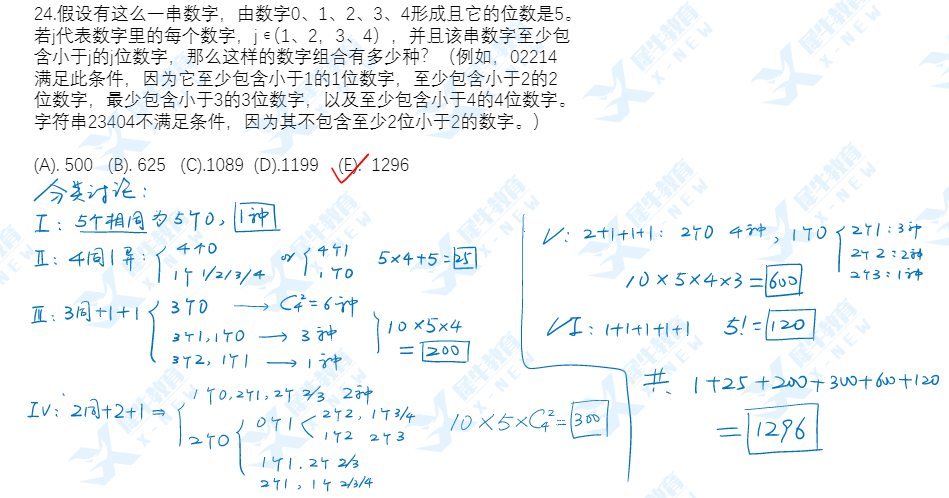 24.假设有这么一串数字，由数字0、1、2、3、4形成且它的位数是5。
若j代表数字里的每个数字，j ∈(1、2，3、4），并且该串数字至少包
含小于j的j位数字，那么这样的数字组合有多少种？（例如，02214
满足此条件，因为它至少包含小于1的1位数字，至少包含小于2的2
位数字，最少包含小于3的3位数字，以及至少包含小于4的4位数字。
字符串23404不满足条件，因为其不包含至少2位小于2的数字。）
(A). 500 (B). 625 (C).1089 (D).1199 (E). 1296
分类讨论：
I：5个相同为5个0，1种
II：4同1异：
4个0
1个 1/2/3/4
or
4个1
1个0
5×4+5=25
III：3同+1+1
3个0 → C₄²=6种
3个1，1个0 → 3种
3个2，1个1 → 1种
10×5×4
=200
IV：2同+2+1⇒
1个0，2个1，2个2/3 2种
2个0
0个1
2个2，1个3/4
1个2 2个3
1个1，2个2/3
2个1，1个2/3/4
10×5×C₄²=300
V：2+1+1+1：2个0 4种，1个0
2个1：3种
2个2：2种
2个3：1种
10×5×4×3=600
VI：1+1+1+1+1 5!=120
共 1+25+200+300+600+120
=1296
犀牛教育
X-NEW